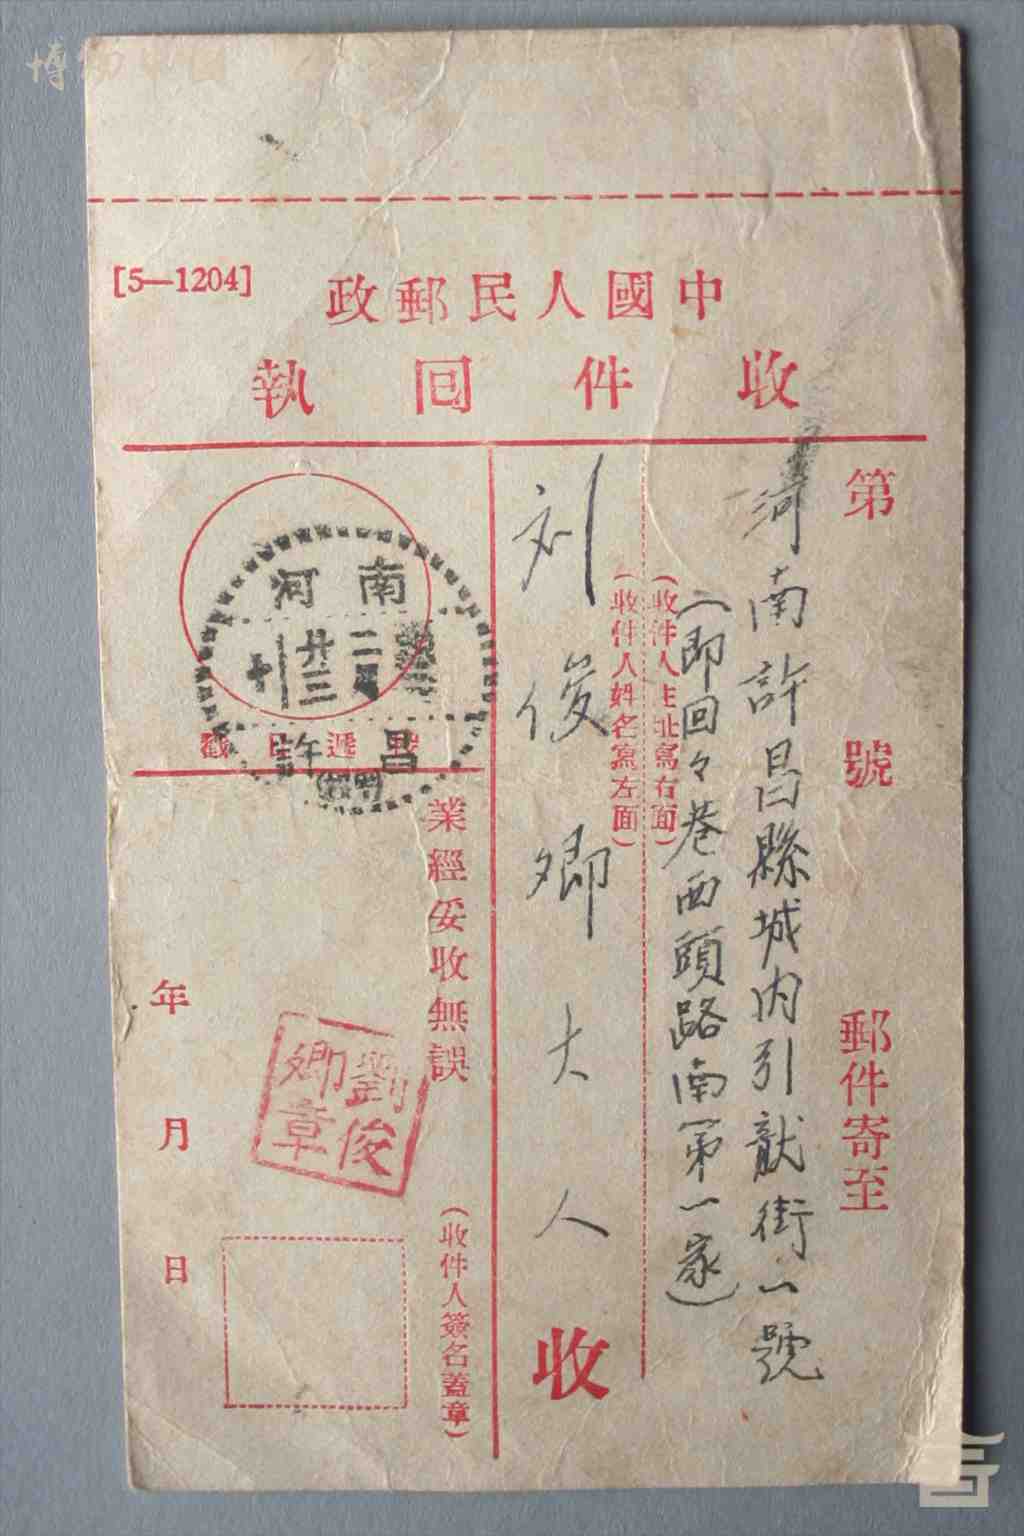 博物中国
[5—1204]
中國人民郵政
收件回執
第　號　郵件寄至
河南許昌縣城内引龍街一號
(即回々巷西頭路南第一家)
(收件人住址寫右面)
(收件人姓名寫左面)
刘俊卿大人收
南河
二
廿三
十
昌許
投遞日戳
業經妥收無誤
劉俊卿章
(收件人簽名蓋章)
年月日